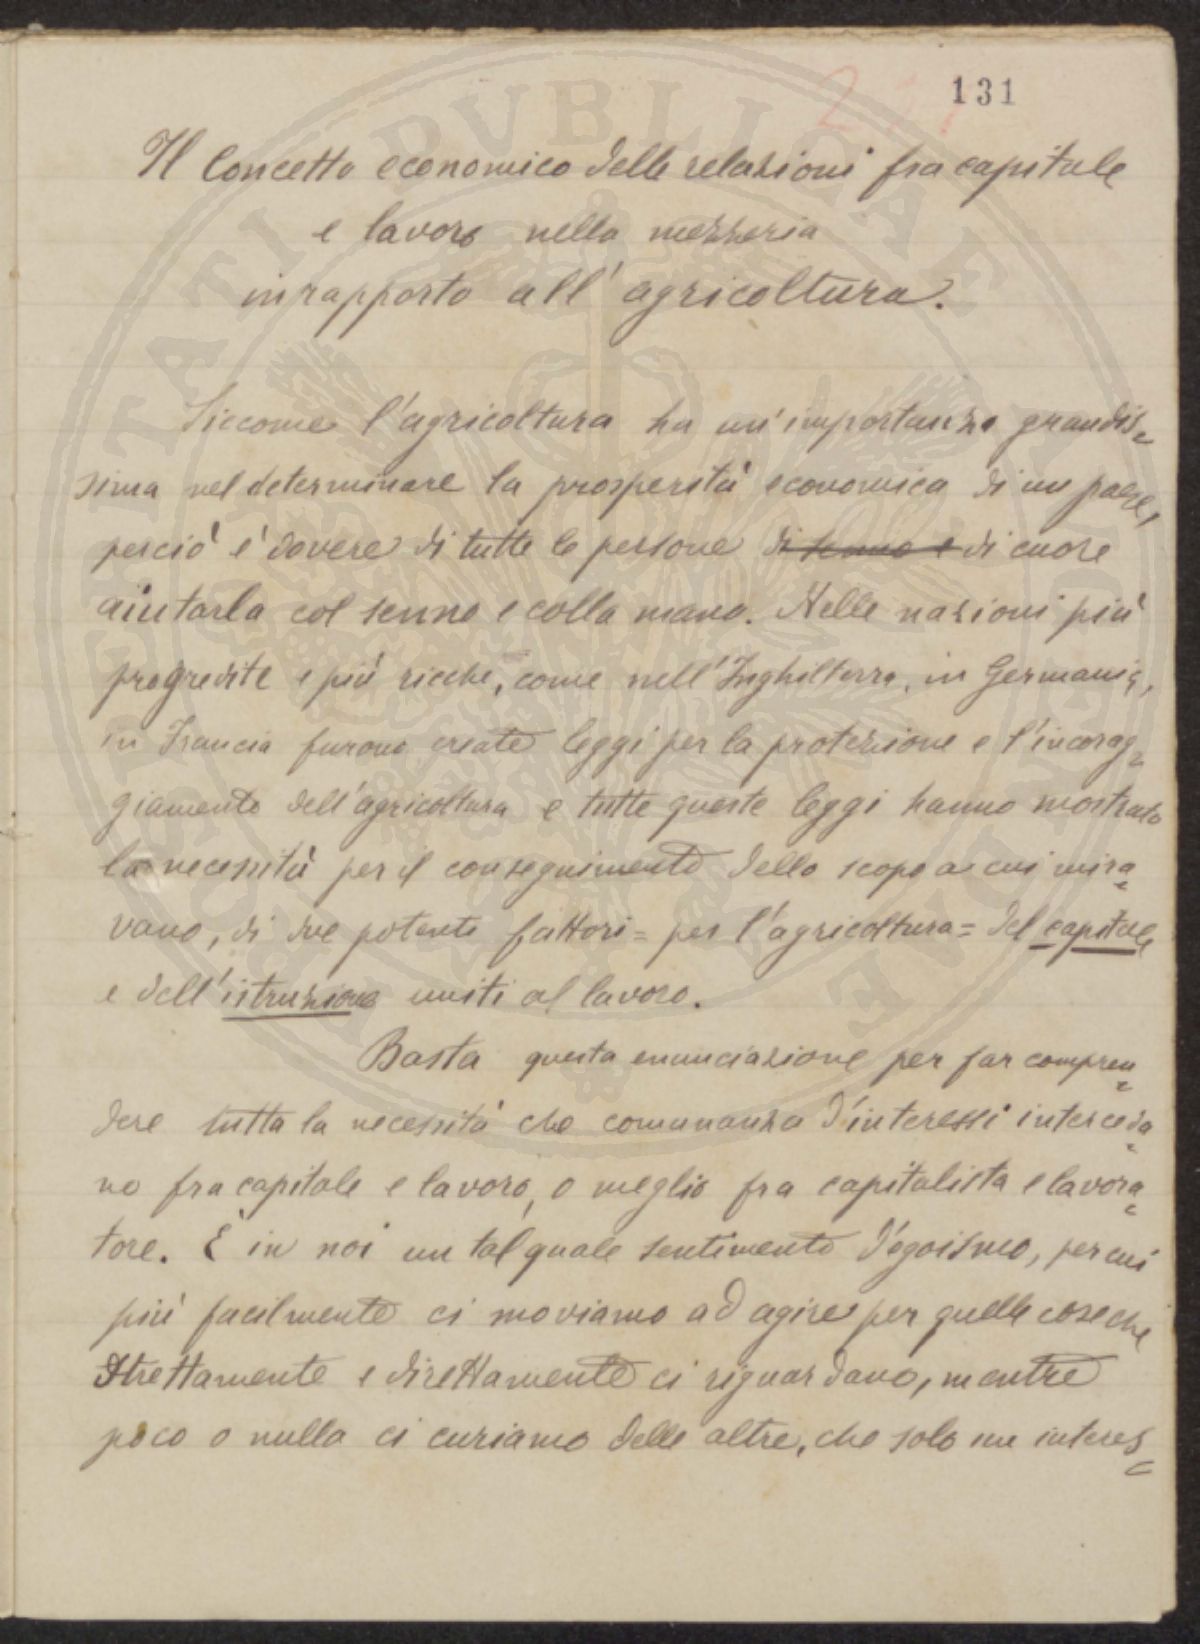 131
Il Concetto economico delle relazioni fra capitale
e lavoro nella mezzeria
in rapporto all'agricoltura.
Siccome l'agricoltura ha un'importanza grandis=
sima nel determinare la prosperità economica di un paese,
perciò è dovere di tutte le persone di senno e di cuore
aiutarla col senno e colla mano. Nelle nazioni più
progredite e più ricche, come nell'Inghilterra, in Germania,
in Francia furono create leggi per la protezione e l'incorag=
giamento dell'agricoltura e tutte queste leggi hanno mostrato
la necessità per il conseguimento dello scopo a cui mira=
vano, di due potenti fattori = per l'agricoltura = del capitale
e dell'istruzione uniti al lavoro.
Basta questa enunciazione per far compren=
dere tutta la necessità che comunanza d'interessi interceda=
no fra capitale e lavoro, o meglio fra capitalista e lavora=
tore. È in noi un tal quale sentimento d'egoismo, per cui
più facilmente ci moviamo ad agire per quelle cose che
strettamente e direttamente ci riguardano, mentre
poco o nulla ci curiamo delle altre, che solo un interes=